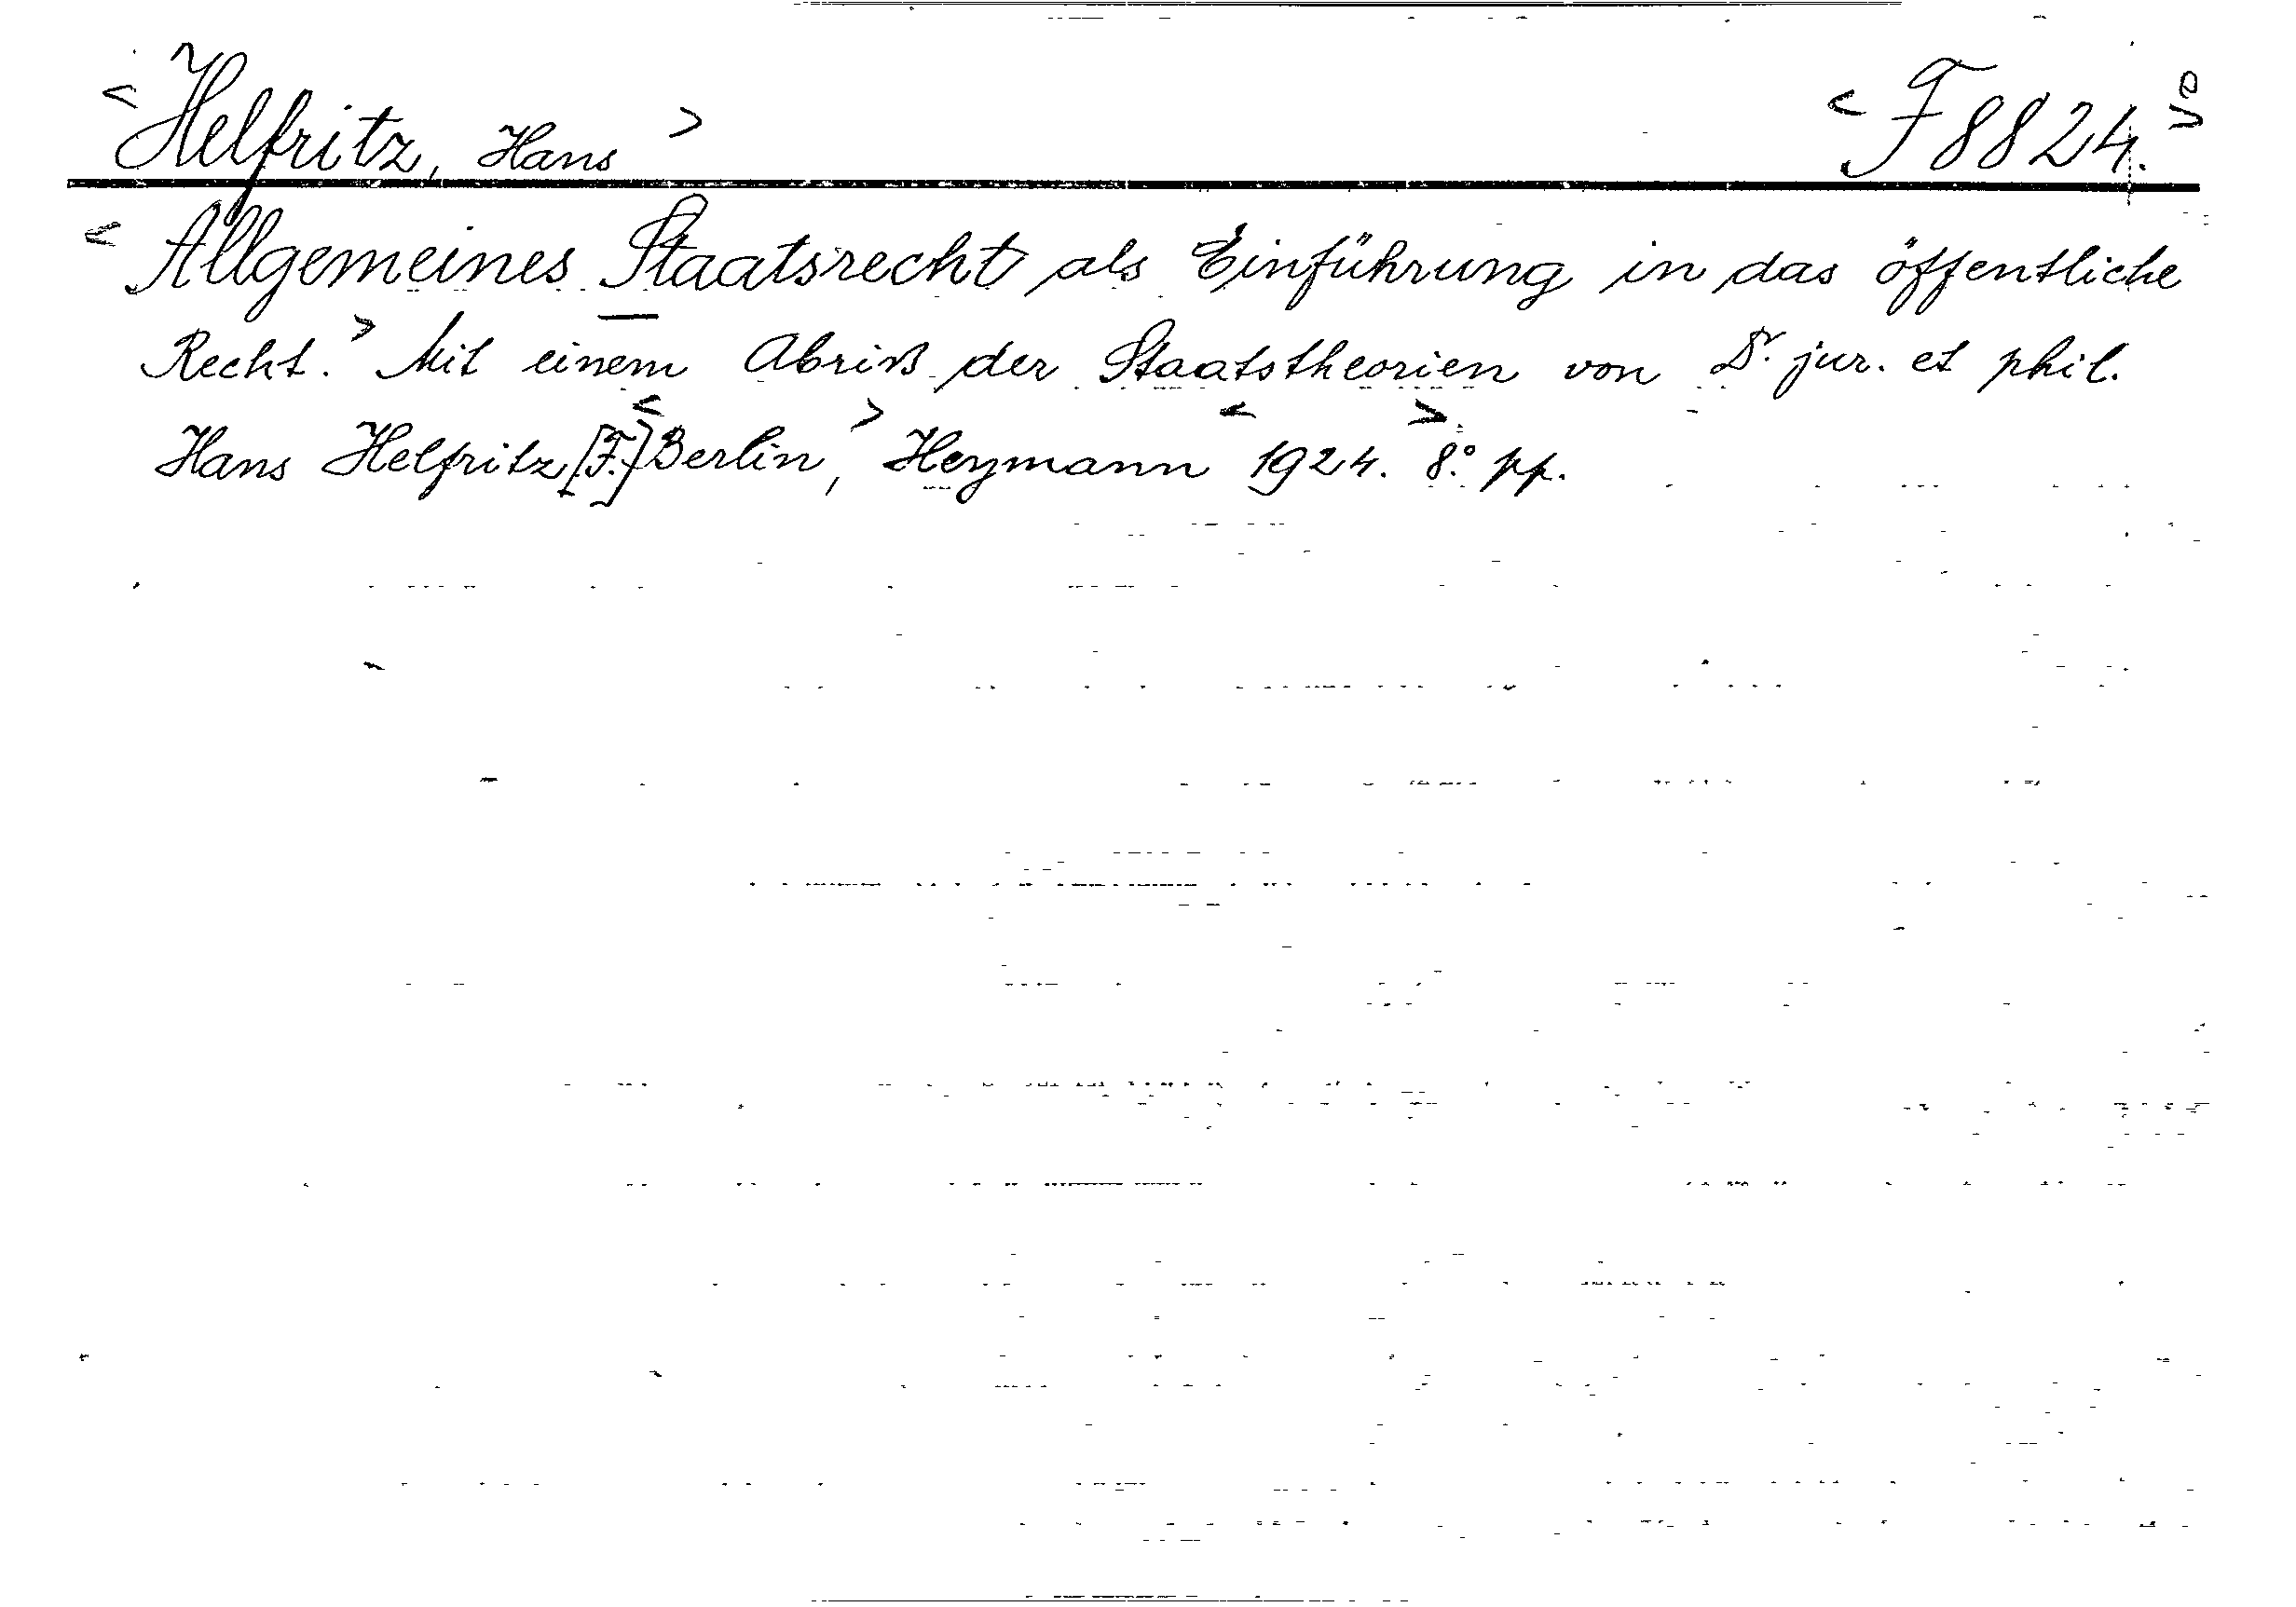 <Helfritz, Hans> <F 8824.8°>
<Allgemeines Staatsrecht als Einführung in das öffentliche
Recht.> Mit einem Abriß der Staatstheorien von Dr. jur. et phil.
Hans Helfritz [F.] <Berlin,> Heymann <1924.> 8° pp.